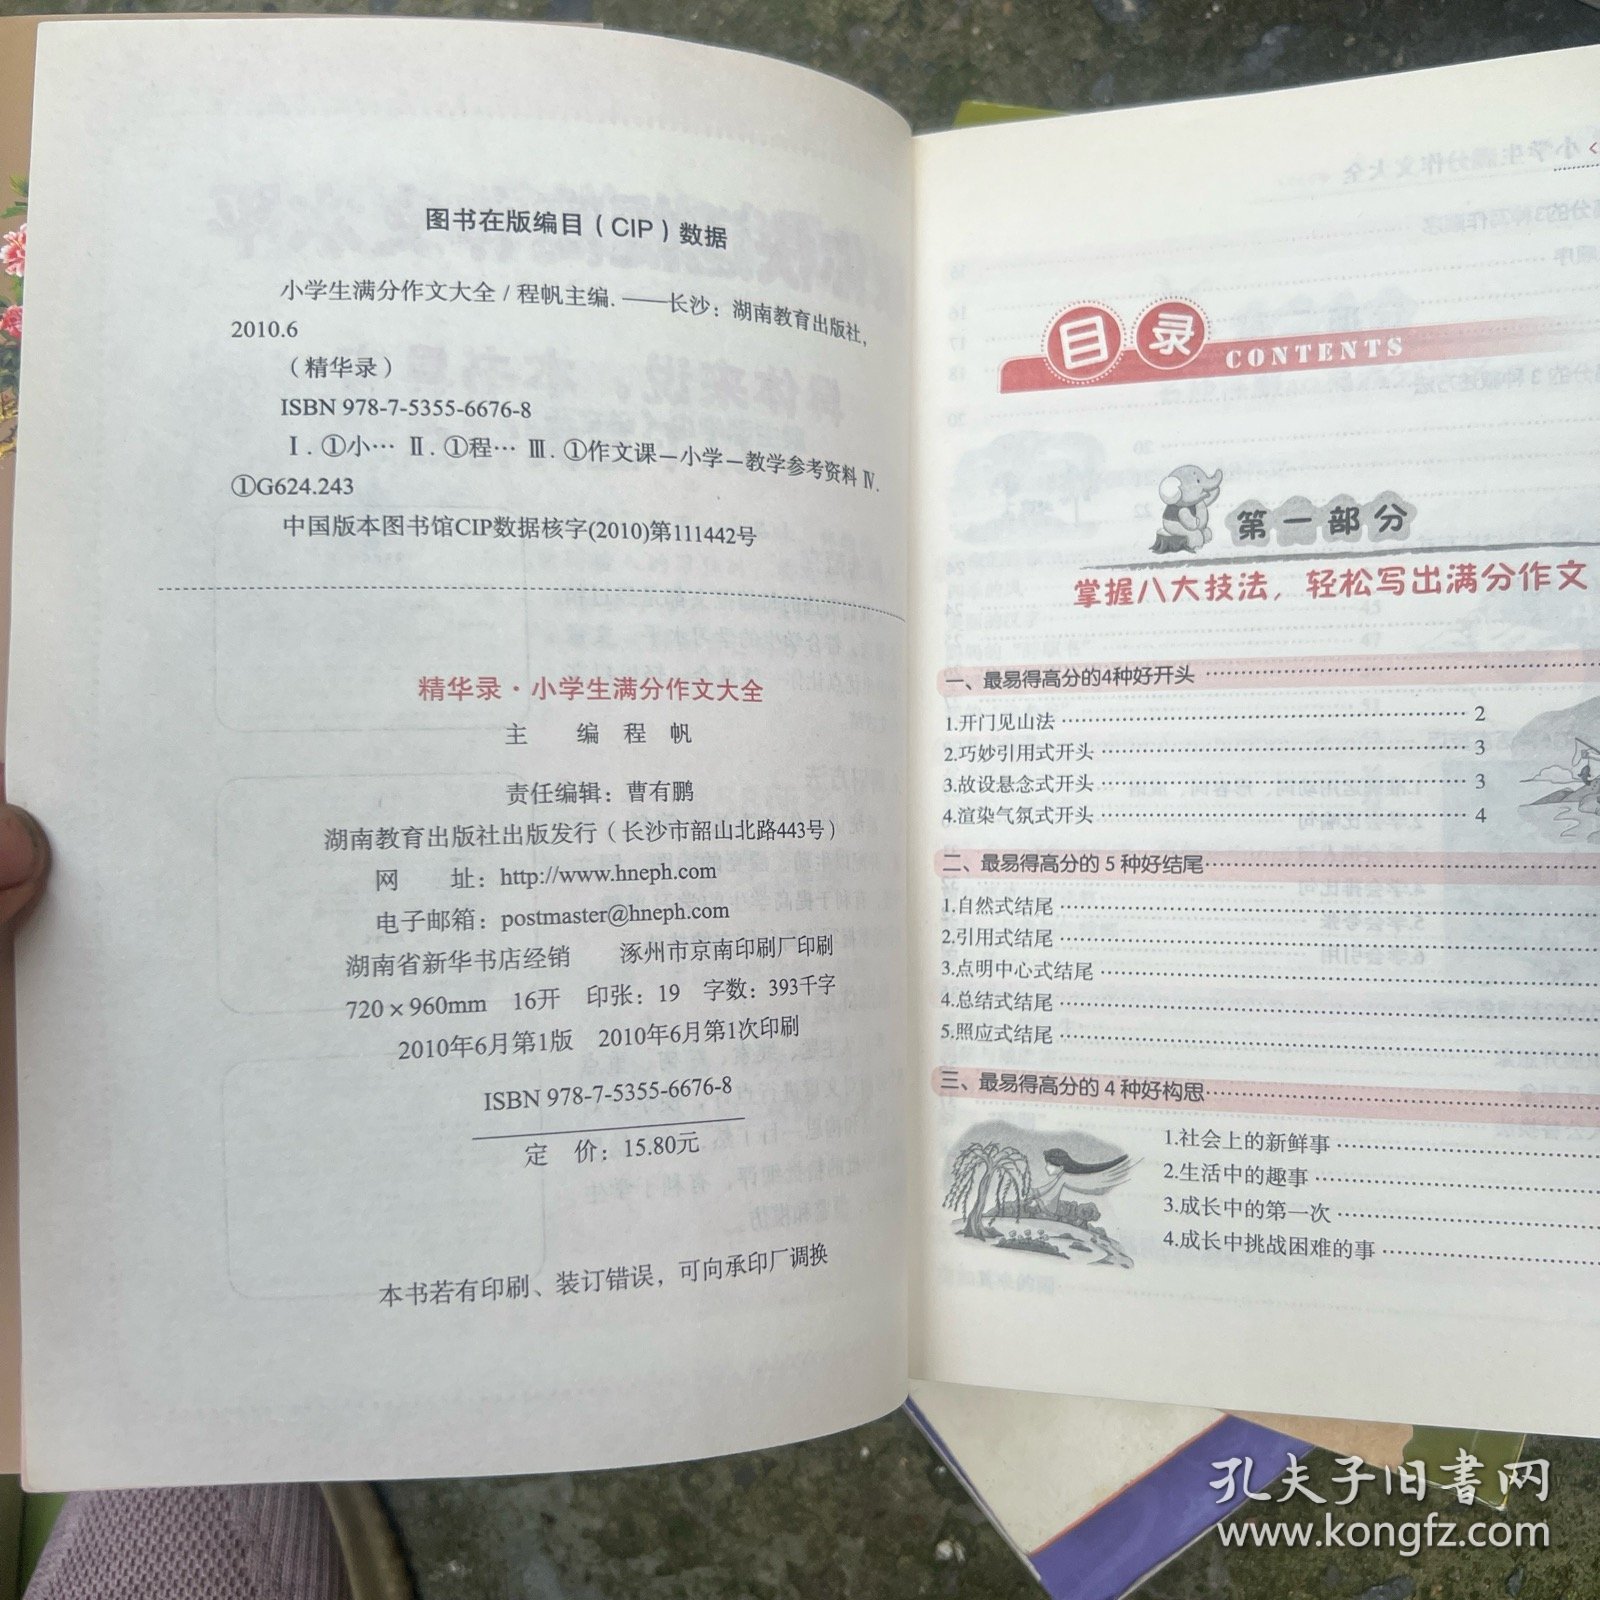 图书在版编目（CIP）数据
小学生满分作文大全/程帆主编.——长沙：湖南教育出版社，
2010.6
（精华录）
ISBN 978-7-5355-6676-8
Ⅰ.①小… Ⅱ.①程… Ⅲ.①作文课－小学－教学参考资料 Ⅳ.
①G624.243
中国版本图书馆CIP数据核字(2010)第111442号
精华录·小学生满分作文大全
主 编 程 帆
责任编辑：曹有鹏
湖南教育出版社出版发行（长沙市韶山北路443号）
网 址：http://www.hneph.com
电子邮箱：postmaster@hneph.com
湖南省新华书店经销 涿州市京南印刷厂印刷
720×960mm 16开 印张：19 字数：393千字
2010年6月第1版 2010年6月第1次印刷
ISBN 978-7-5355-6676-8
定 价：15.80元
本书若有印刷、装订错误，可向承印厂调换
目录
CONTENTS
第一部分
掌握八大技法，轻松写出满分作文
一、最易得高分的4种好开头
1.开门见山法 2
2.巧妙引用式开头 3
3.故设悬念式开头 3
4.渲染气氛式开头 4
二、最易得高分的5种好结尾
1.自然式结尾
2.引用式结尾
3.点明中心式结尾
4.总结式结尾
5.照应式结尾
三、最易得高分的4种好构思
1.社会上的新鲜事
2.生活中的趣事
3.成长中的第一次
4.成长中挑战困难的事
孔夫子旧书网
www.kongfz.com